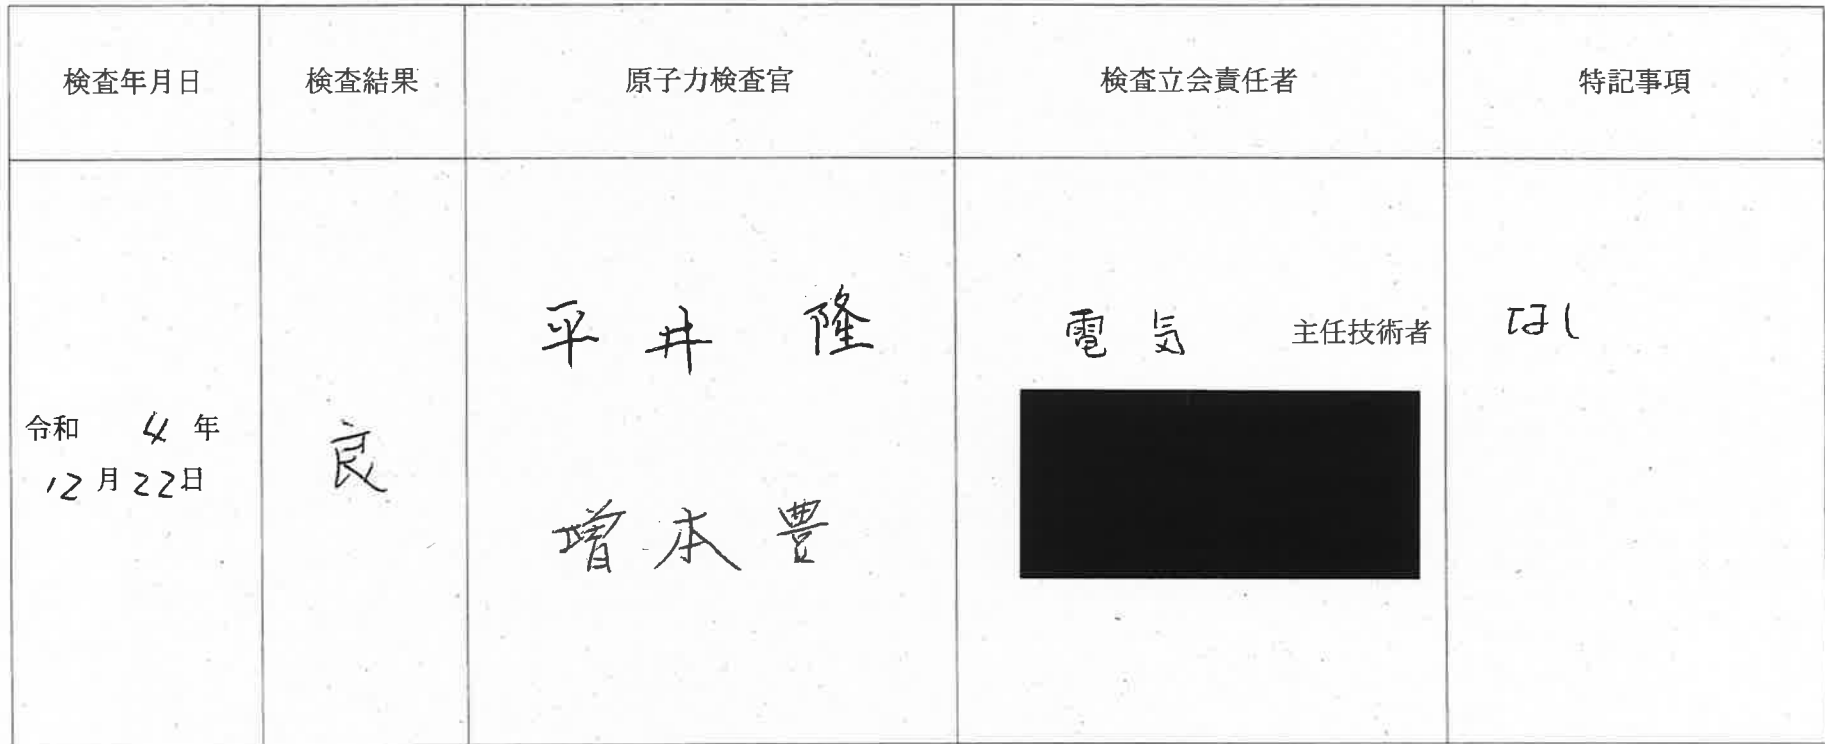 検査年月日 検査結果 原子力検査官 検査立会責任者 特記事項
令和 4 年
12月22日
良
平井 隆
増本 豊
電気 主任技術者
なし